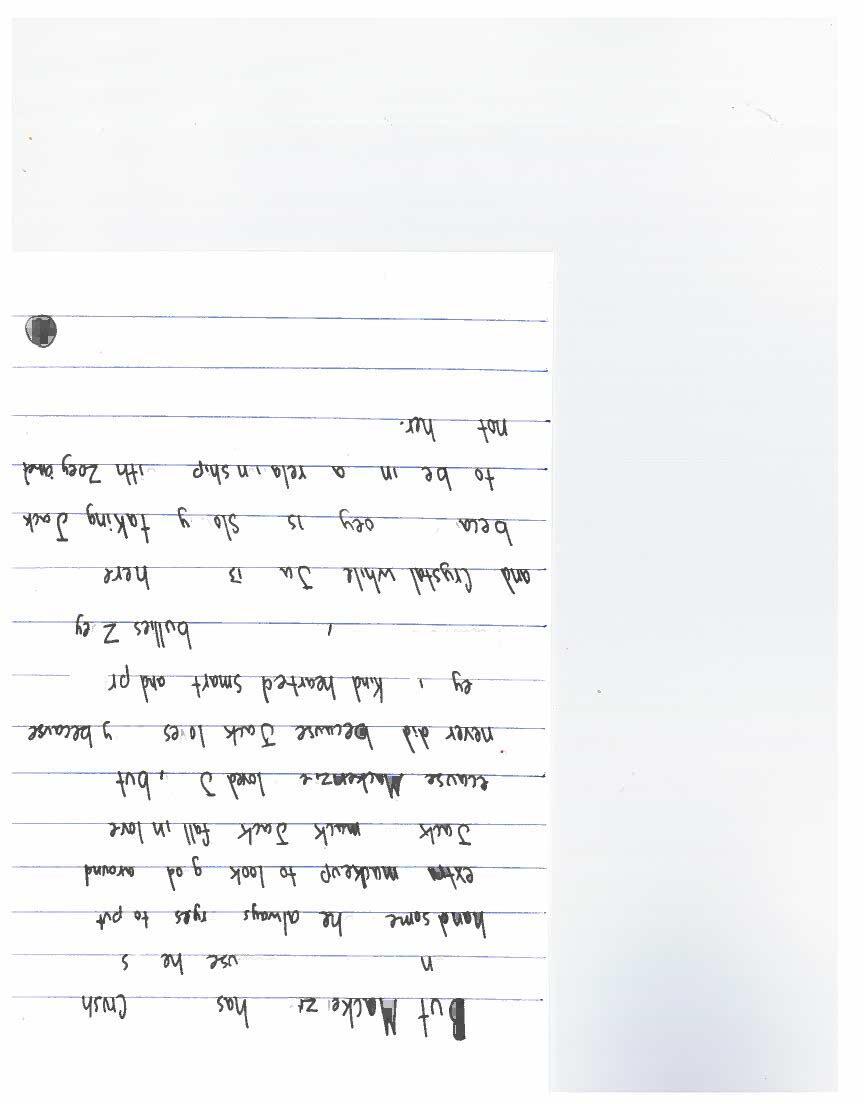 But Mackezi has Crush
n use he s
handsome he always ryes to put
extra makeup to look g od around
Jack mack Jack fall in love
ecause Mackenzie loved J , but
never did because Jack loves y because
ey , kind hearted smart and pr
, bullies Z ey
and Crystal while Ja is here
beca oey is slo y taking Jack
to be in a rela inship ith Zoey and
not her.